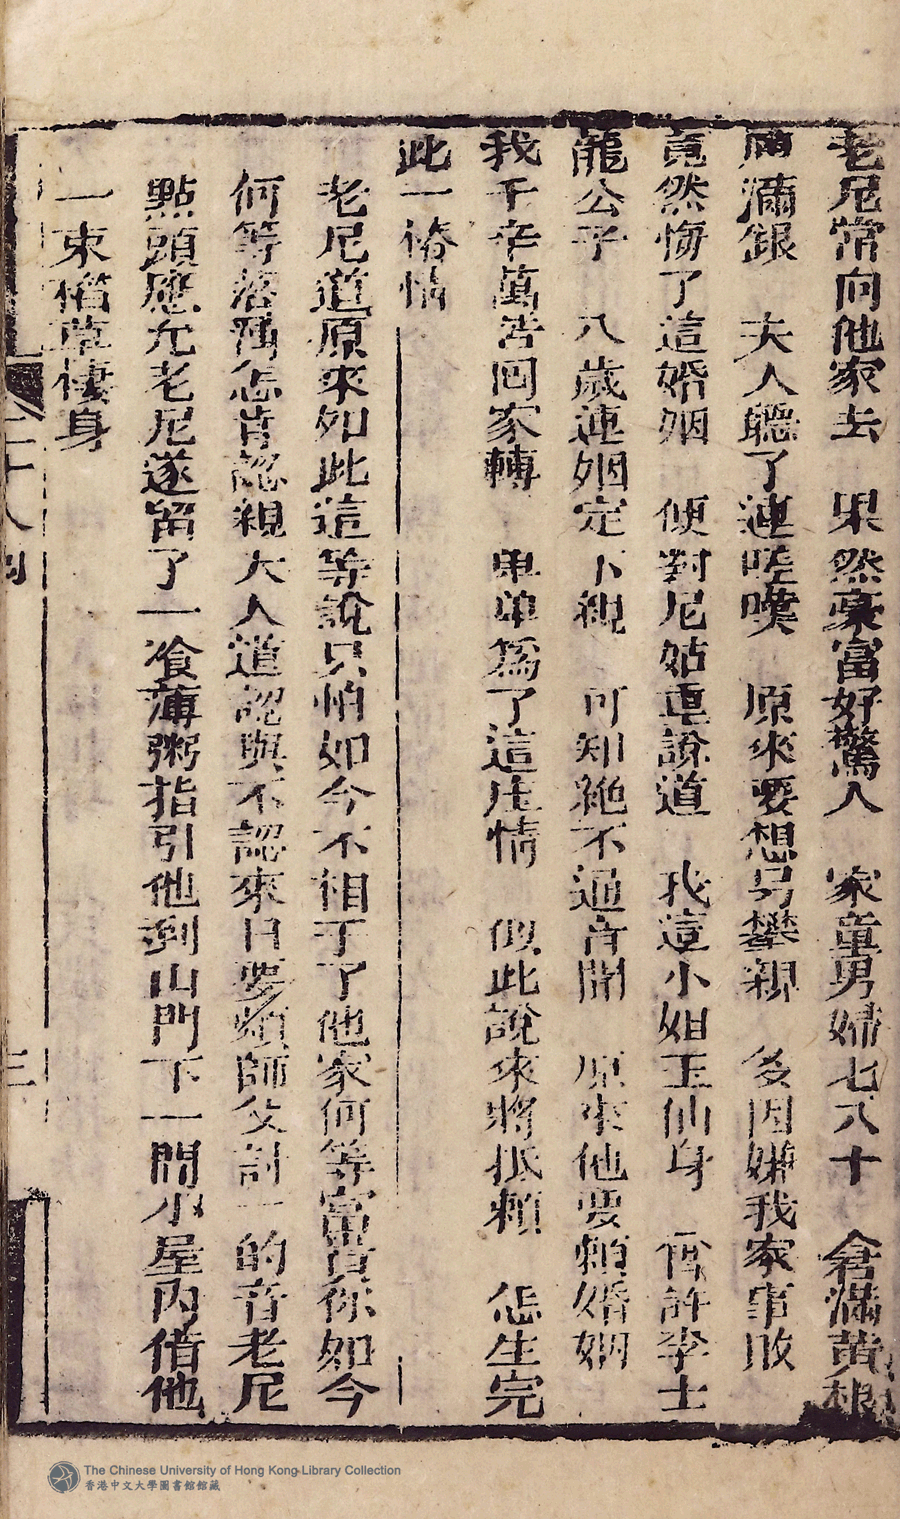 老尼常向他家去　果然豪富好驚人　家童男婦七八十　倉滿黄粮
廚滿銀　夫人聽了連嗟嘆　原來要想另攀親　多因嫌我家事敗
竟然悔了這婚姻　便對尼姑重說道　我這小姐玉仙身　曾許李士
龍公子　八歲連姻定下親　可知絶不通音聞　原來他要賴婚姻
我千辛萬苦回家轉　単単爲了這庄情　似此說來將抵賴　怎生完
此一樁情
老尼道原來如此這等說只怕如今不相干了他家何等富貴你如今
何等落薄怎肯認親夫人道認與不認來日要煩師父討一的音老尼
點頭應允老尼遂留了一飡薄粥指引他到山門下一間小屋内借他
一束稻草棲身
二十八回
三
The Chinese University of Hong Kong Library Collection
香港中文大學圖書館館藏